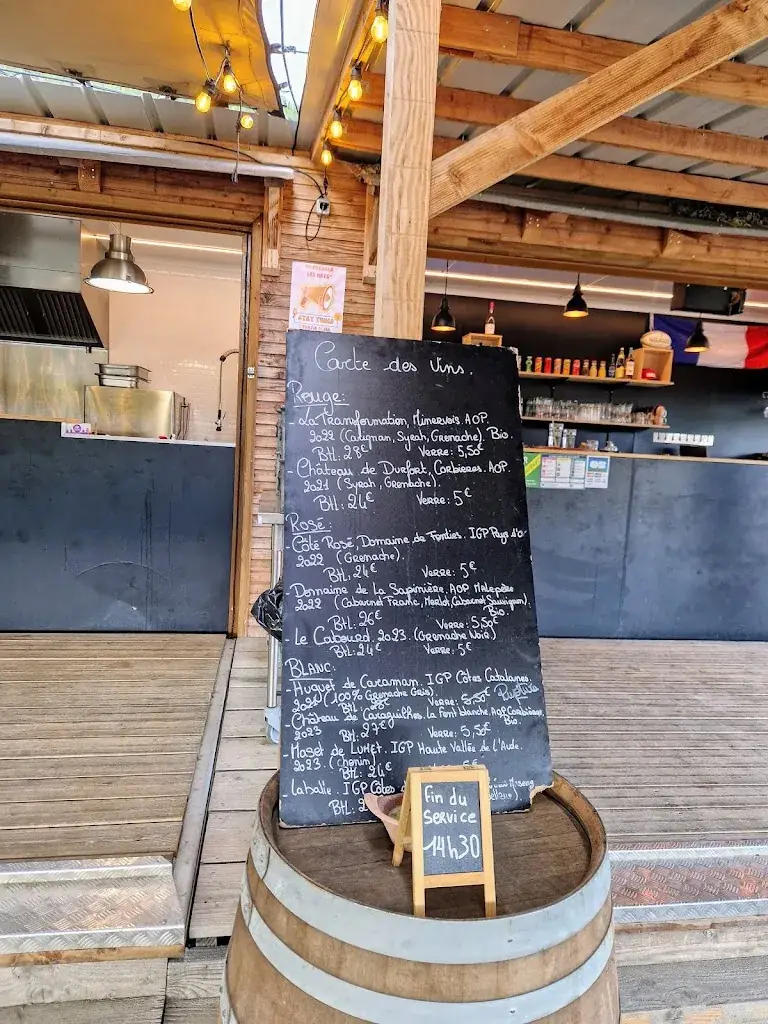 Carte des Vins.
Rouge:
- La Transformation, Minervois. AOP.
2022 (Carignan, Syrah, Grenache). Bio.
Btl: 28€ Verre: 5,50€
- Château de Durfort, Corbières. AOP.
2021 (Syrah, Grenache).
Btl: 24€ Verre: 5€
Rosé:
- Côté Rosé, Domaine de Fonties. IGP Pays d'Oc
2022 (Grenache).
Btl: 24€ Verre: 5€
Domaine de La Sapinière, AOP Malepère
2022 (Cabernet Franc, Merlot, Cabernet Sauvignon).
Bio.
Btl: 26€ Verre: 5,50€
- Le Cabourd. 2023. (Grenache Noir)
Btl: 24€ Verre: 5€
Blanc:
- Huguet de Caraman. IGP Côtes Catalanes.
2021 (100% Grenache Gris).
Btl: 28€ Verre: 5,50€
- Château de Caraguilhes. La Font blanche. AOP Corbières.
2023 Bio.
Btl: 27€ Verre: 5,50€
- Maset de Lunet. IGP Haute Vallée de l'Aude.
2023. (chenin)
Btl: 24€
- Laballe. IGP Côtes
Btl: 2
Fin du
Service
14h30
STAY TUNED